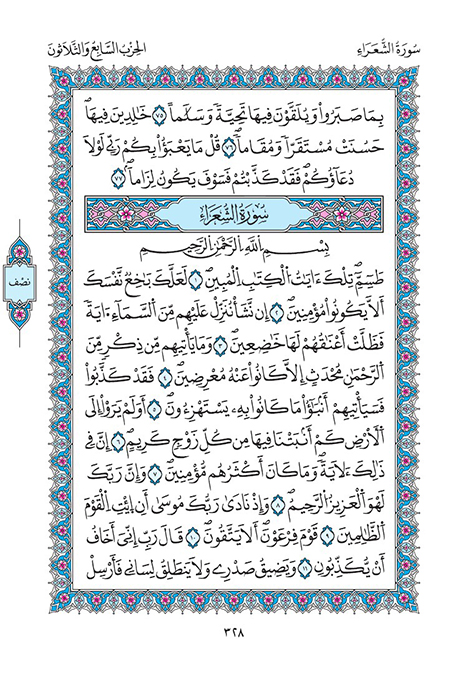 سُورَةُ الشُّعَرَاءِ
الحِزْبُ السَّابِعُ وَالثَّلَاثُونَ
بِمَا صَبَرُواْ وَيُلَقَّوْنَ فِيهَا تَحِيَّةً وَسَلَٰماً ۝٧٥ خَٰلِدِينَ فِيهَا
حَسُنَتْ مُسْتَقَرّاً وَمُقَاماً ۝٧٦ قُلْ مَا يَعْبَؤُاْ بِكُمْ رَبِّے لَوْلَا
دُعَآؤُكُمْ فَقَدْ كَذَّبْتُمْ فَسَوْفَ يَكُونُ لِزَاماً ۝٧٧
سُورَةُ الشُّعَرَاءِ
بِسْمِ اللَّهِ الرَّحْمَٰنِ الرَّحِيمِ
طَسِٓمِّٓ تِلْكَ ءَايَٰتُ اُ۬لْكِتَٰبِ اِ۬لْمُبِينِ ۝١ لَعَلَّكَ بَٰخِعٞ نَّفْسَكَ
أَلَّا يَكُونُواْ مُؤْمِنِينَ ۝٢ إِن نَّشَأْ نُنَزِّلْ عَلَيْهِم مِّنَ اَ۬لسَّمَآءِ ا۬يَةٗ
فَظَلَّتَ اَعْنَٰقُهُمْ لَهَا خَٰضِعِينَ ۝٣ وَمَا يَأْتِيهِم مِّن ذِكْرٖ مِّنَ
اَ۬لرَّحْمَٰنِ مُحْدَثٍ اِلَّا كَانُواْ عَنْهُ مُعْرِضِينَ ۝٤ فَقَدْ كَذَّبُواْ
فَسَيَأْتِيهِمُ أَنۢبَٰٓؤُاْ مَا كَانُواْ بِهِۦ يَسْتَهْزِءُونَ ۝٥ أَوَلَمْ يَرَوِاْ اِلَى
اَ۬لَارْضِ كَمَ اَنۢبَتْنَا فِيهَا مِن كُلِّ زَوْجٖ كَرِيمٍ ۝٦ اِنَّ فِے
ذَٰلِكَ ءَلَايَةٗ وَمَا كَانَ أَكْثَرُهُم مُّؤْمِنِينَ ۝٧ وَإِنَّ رَبَّكَ
لَهُوَ اَ۬لْعَزِيزُ اُ۬لرَّحِيمُ ۝٨ وَإِذْ نَادَىٰ رَبُّكَ مُوسَىٰٓ أَنِ اِ۪يتِ اِ۬لْقَوْمَ
اَ۬لظَّٰلِمِينَ ۝٩ قَوْمَ فِرْعَوْنَ أَلَا يَتَّقُونَ ۝١٠ قَالَ رَبِّ إِنِّيَ أَخَافُ
أَنْ يُّكَذِّبُونِ ۝١١ وَيَضِيقُ صَدْرِے وَلَا يَنطَلِقُ لِسَانِے فَأَرْسِلِ
نِصْف
٣٢٨